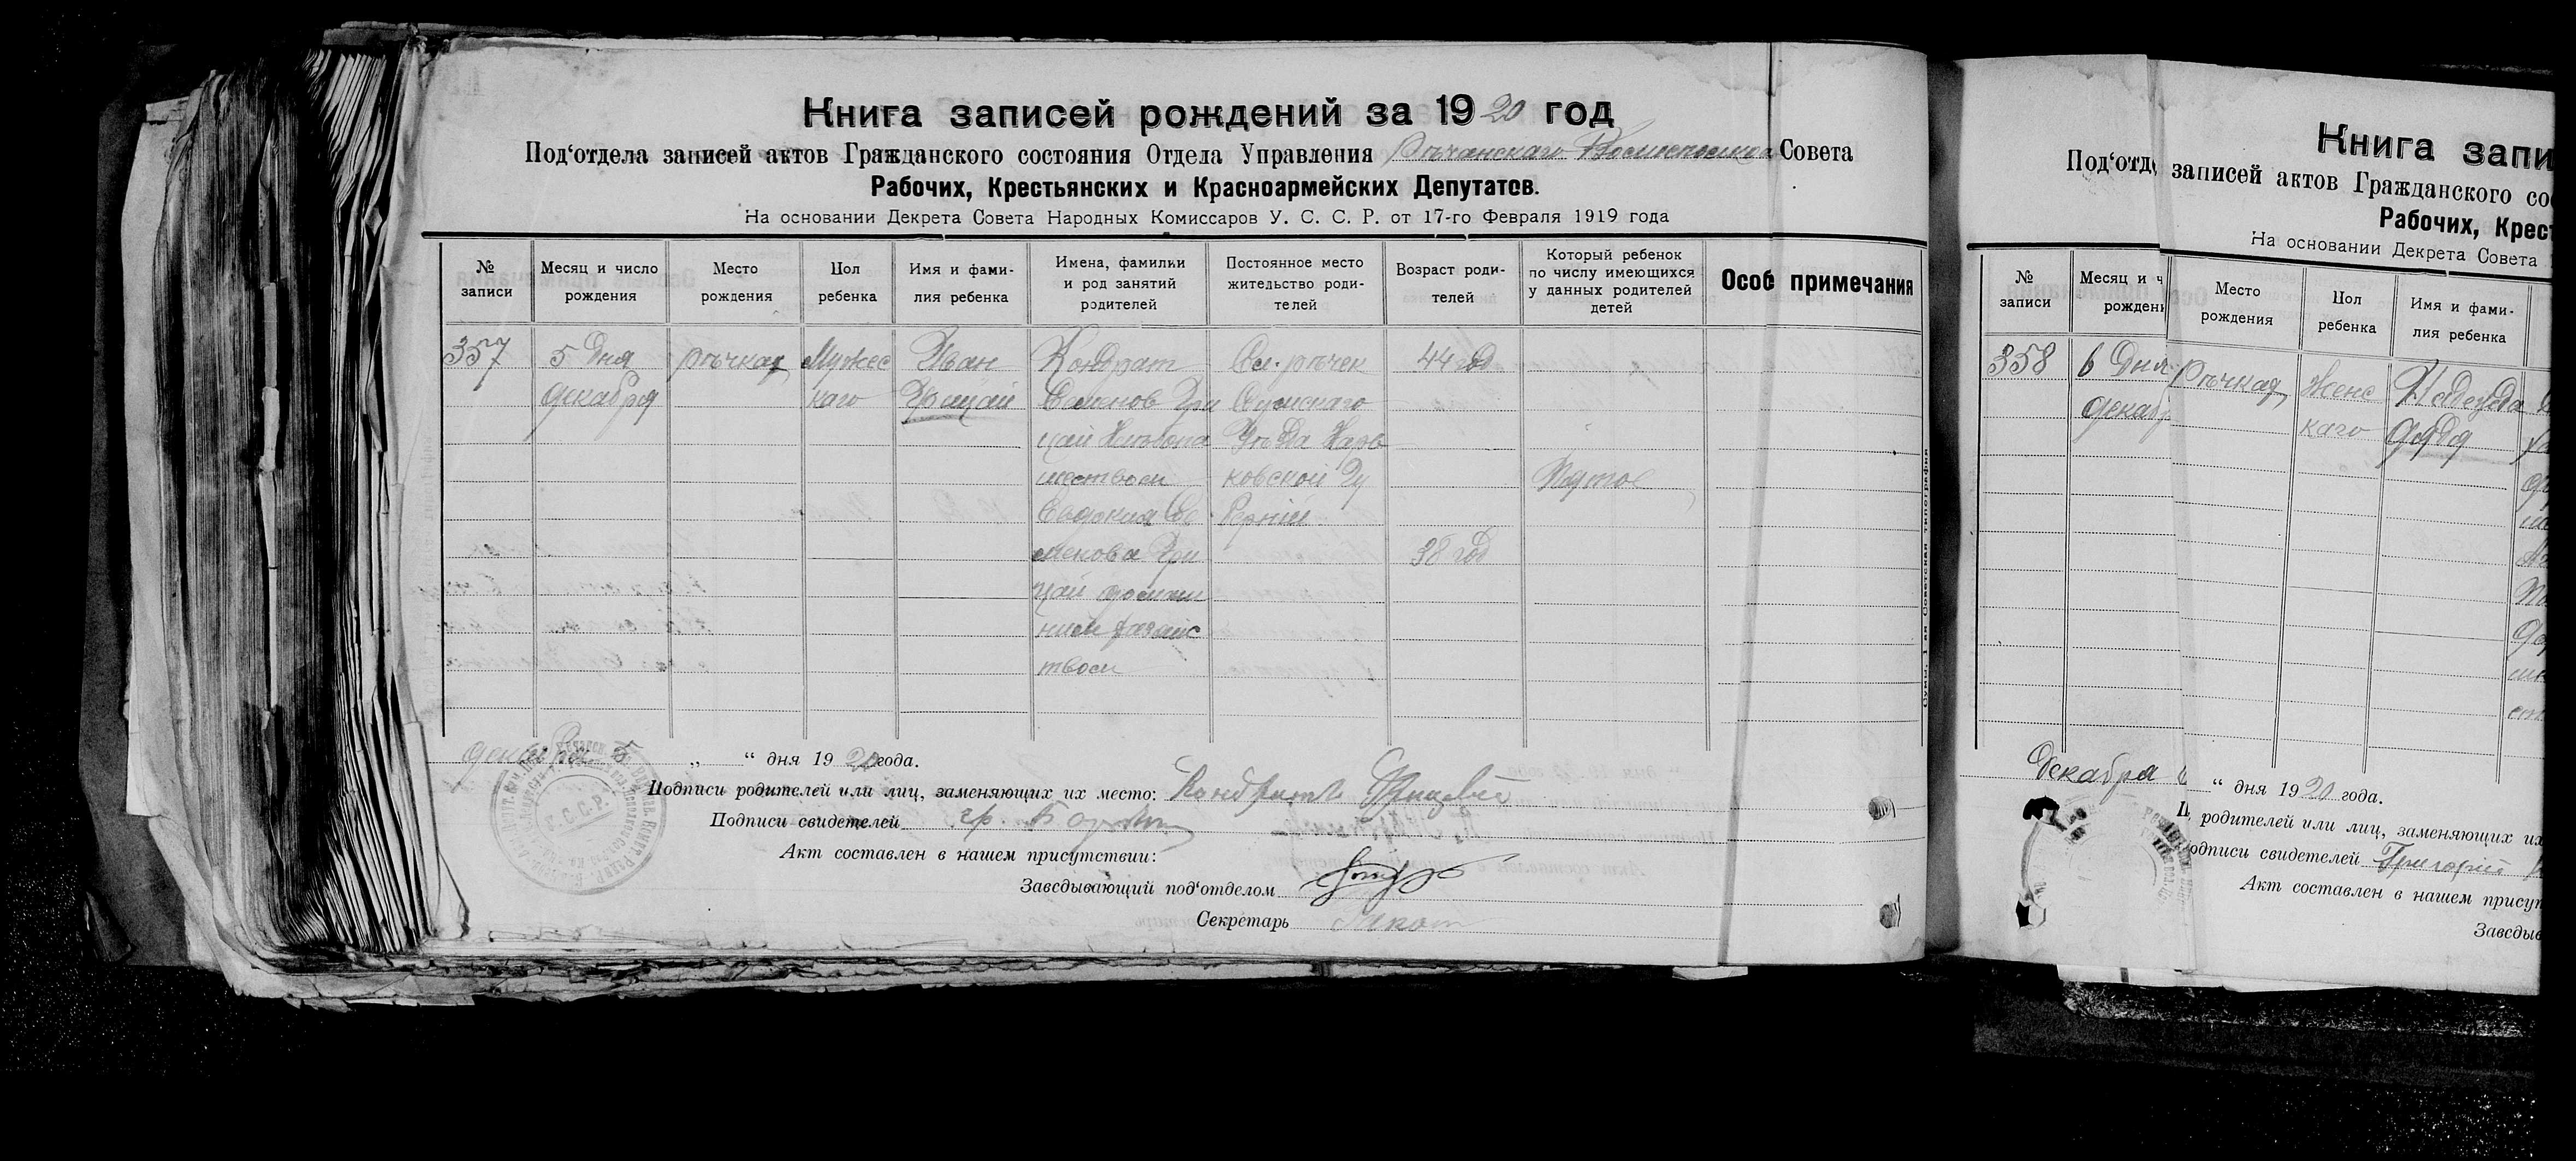 Книга записей рождений за 1920 год
Под‘отдела записей актов Гражданского состояния Отдела Управления Рѣчанскаго Совета
Рабочих, Крестьянских и Красноармейских Депутатов.
На основании Декрета Совета Народных Комиссаров У. С. С. Р. от 17-го Февраля 1919 года
№ записи
Месяц и число рождения
Место рождения
Пол ребенка
Имя и фами-
лия ребенка
Имена, фамилии
и род занятий
родителей
Постоянное место
жительство роди-
телей
Возраст роди-
телей
Который ребенок
по числу имеющихся
у данных родителей
детей
Особ примечания
357
5 дня
декабря
рѣчках
Мужес
каго
Иван
Грицай
Кондрат
Семенов Гри
цай
Евдокия Се
менова Гри
цай домаш
ним хозяйс
твом
Сл. рѣчек
Сумскаго
Уѣзда Харь
ковской Гу
бернии
44 год
38 год
Пятое
Сумы, 1-ая Советская типография
декабря 5 „ “ дня 1920 года.
Подписи родителей или лиц, заменяющих их место: Кондрат
Подписи свидетелей гр.
Акт составлен в нашем присутствии:
Заведывающий под‘отделом
Секретарь
Книга запи
Под‘отд записей актов Гражданского сос
Рабочих, Крест
На основании Декрета Совета
№ записи
Месяц и ч
рождени
Место рождения
Пол ребенка
Имя и фами-
лия ребенка
358
6 дня
декаб
Рѣчках
Женс
каго
Надежда
Дядя
декабря “ дня 1920 года.
П родителей или лиц, заменяющих их
одписи свидетелей Григорий
Акт составлен в нашем присут
Заведыв